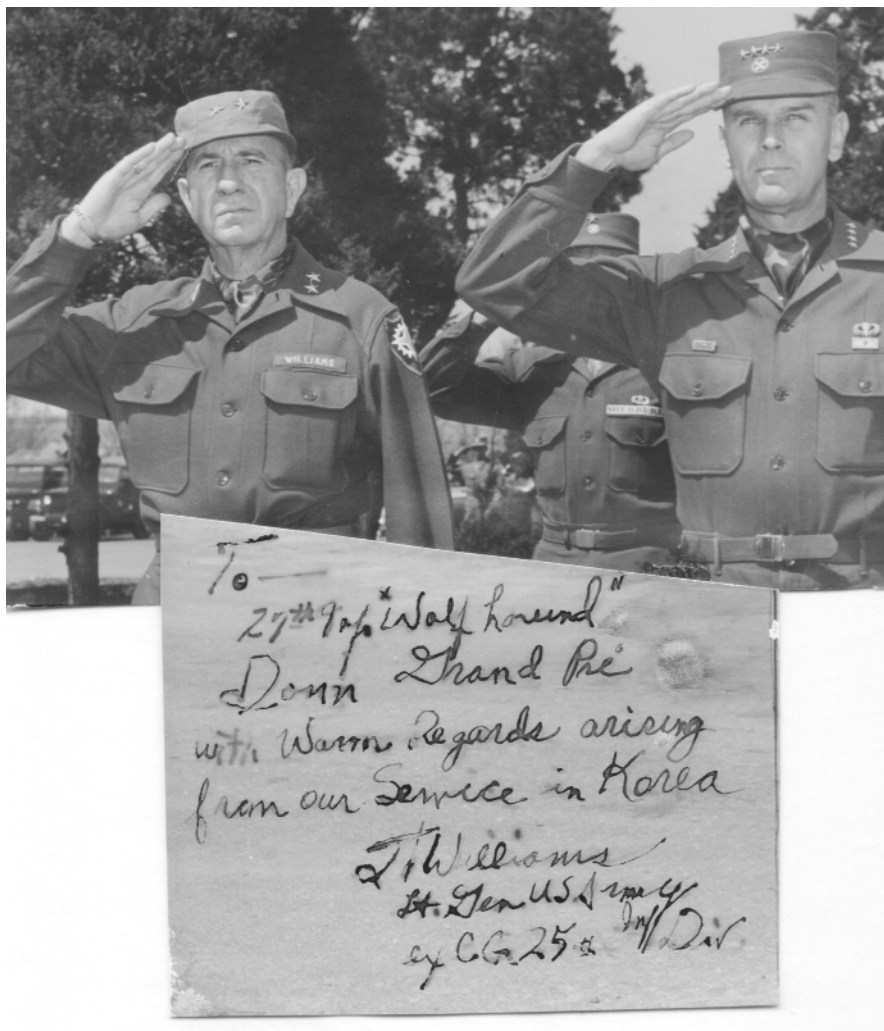 WILLIAMS
To —
27th Inf. "Wolf hound"
Donn Grand Pré
with Warm Regards arising
from our Service in Korea
Williams
Lt. Gen US Army
ex C.G. 25th Inf Div.